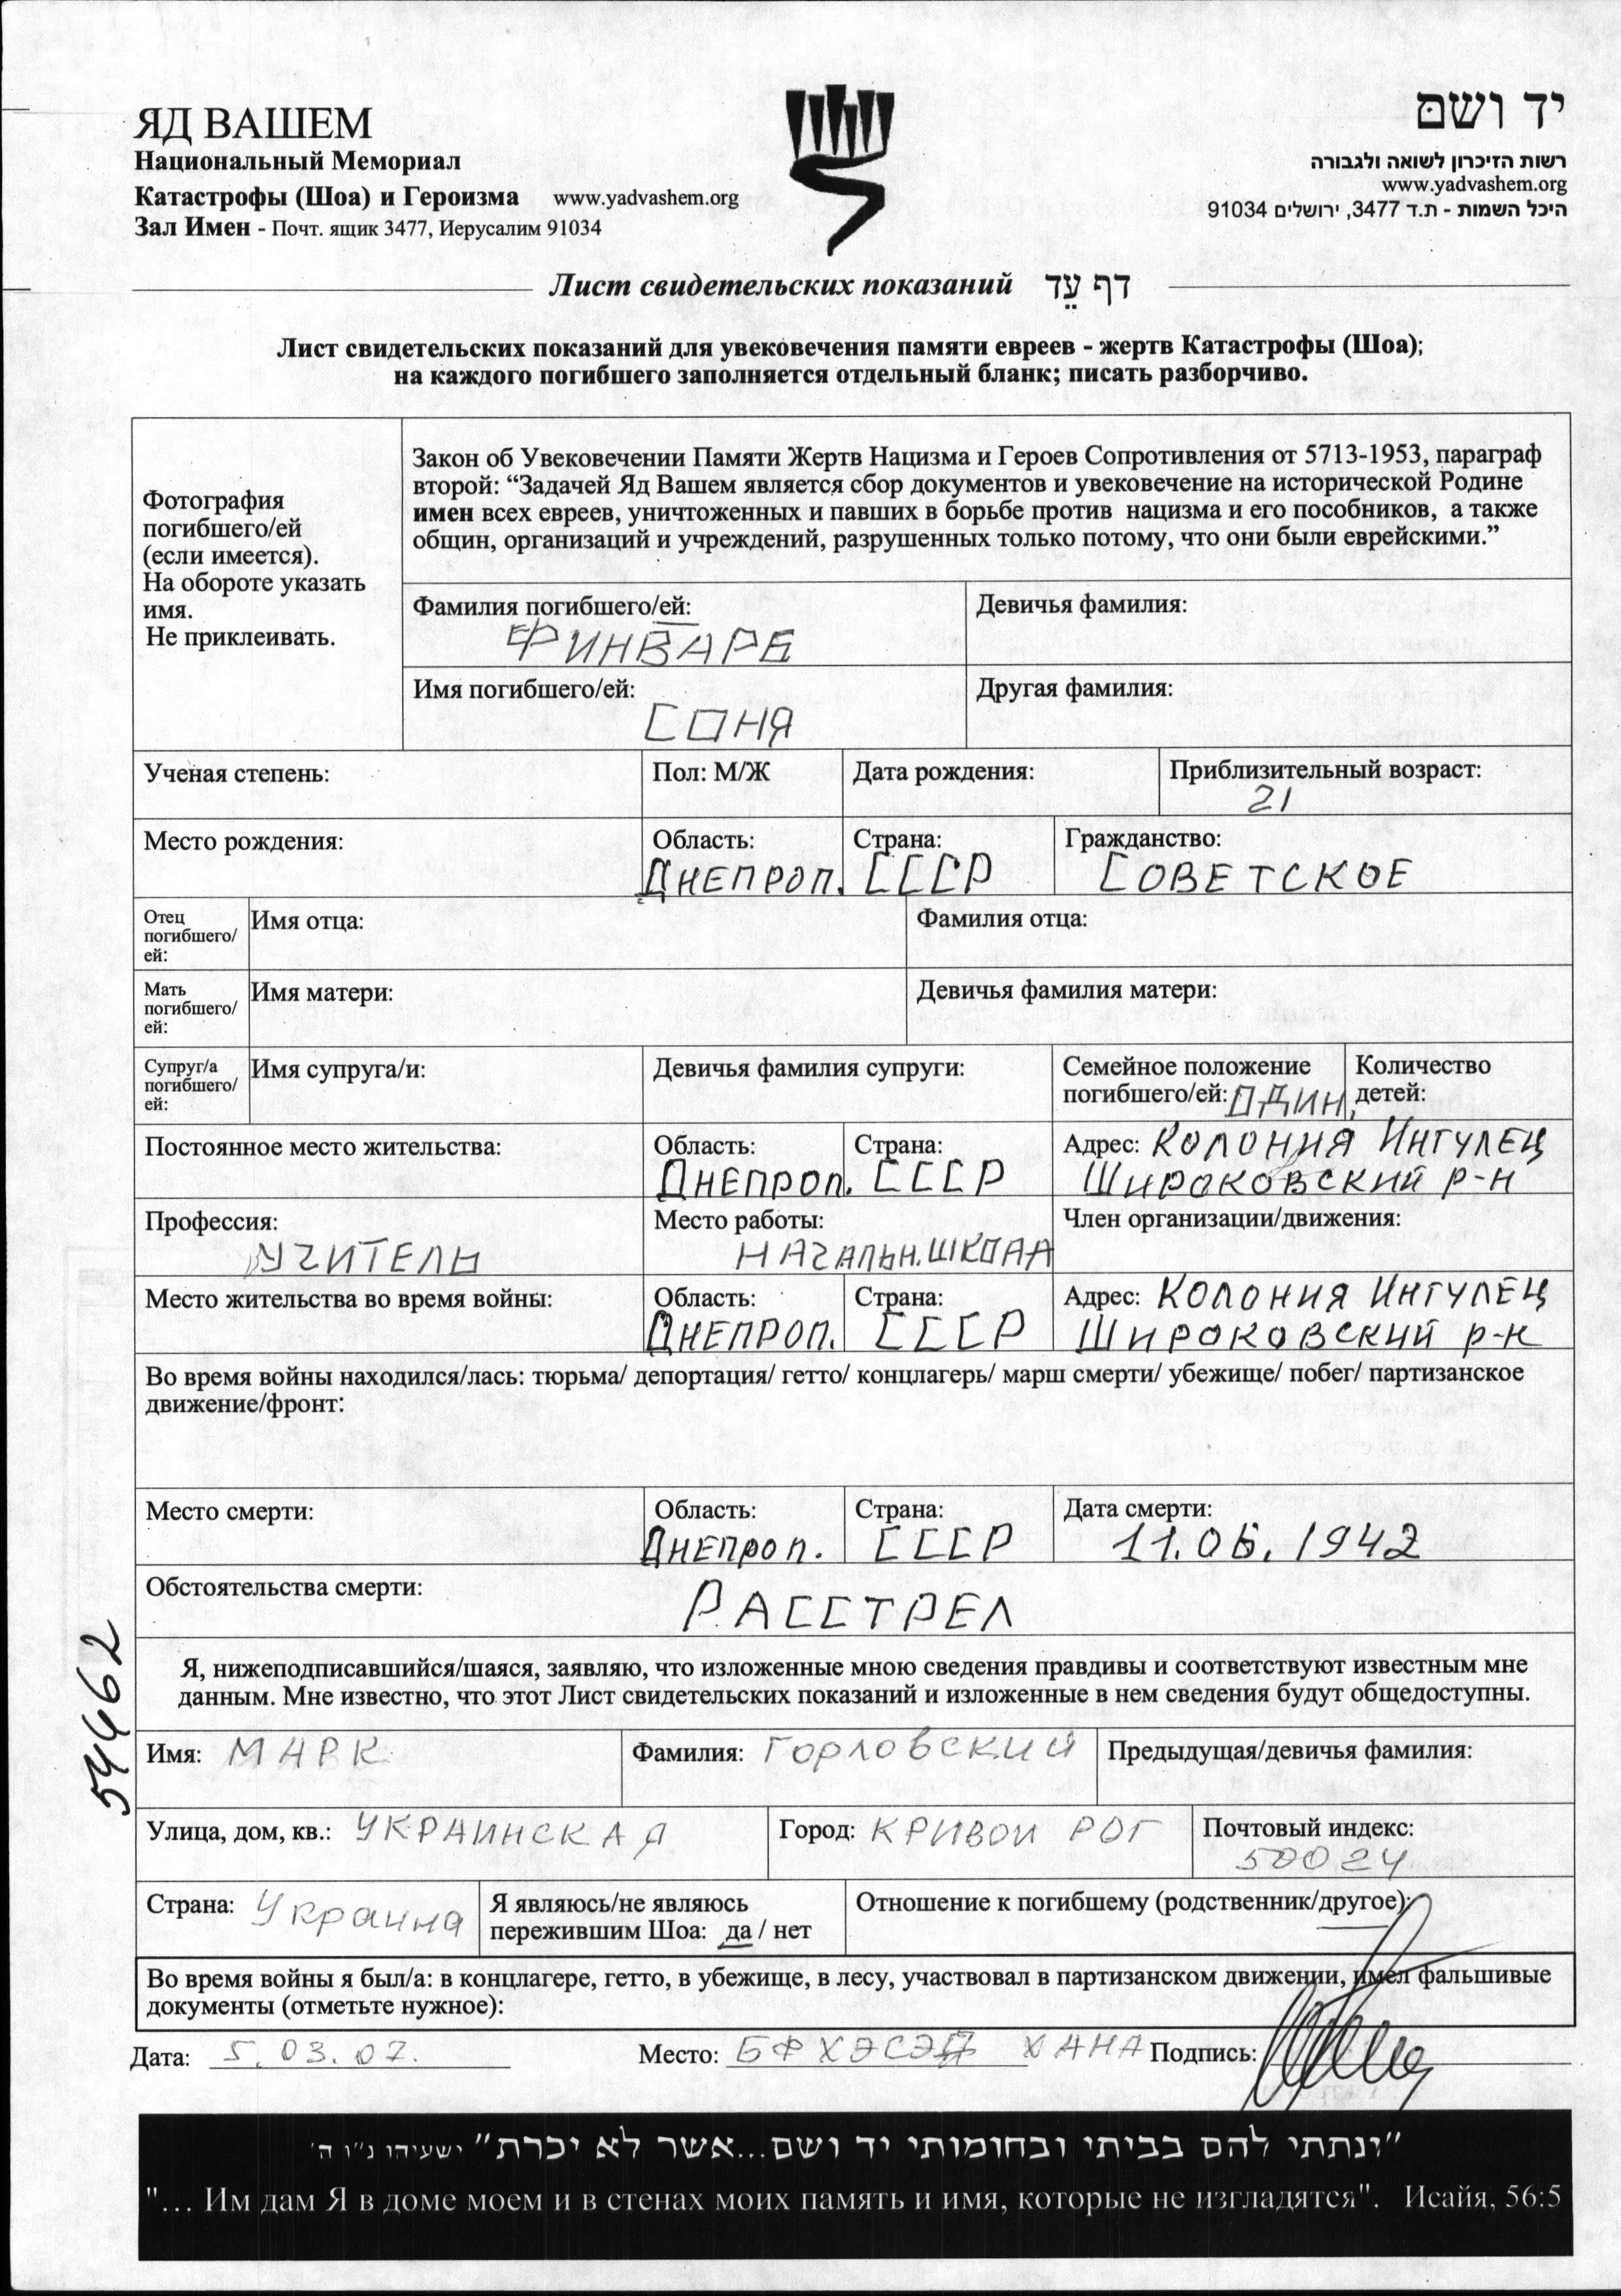 ЯД ВАШЕМ
Национальный Мемориал
Катастрофы (Шоа) и Героизма www.yadvashem.org
Зал Имен - Почт. ящик 3477, Иерусалим 91034
יד ושם
רשות הזיכרון לשואה ולגבורה
www.yadvashem.org
היכל השמות - ת.ד 3477, ירושלים 91034
Лист свидетельских показаний דף עֵד
Лист свидетельских показаний для увековечения памяти евреев - жертв Катастрофы (Шоа);
на каждого погибшего заполняется отдельный бланк; писать разборчиво.
Фотография
погибшего/ей
(если имеется).
На обороте указать
имя.
Не приклеивать.
Закон об Увековечении Памяти Жертв Нацизма и Героев Сопротивления от 5713-1953, параграф
второй: “Задачей Яд Вашем является сбор документов и увековечение на исторической Родине
имен всех евреев, уничтоженных и павших в борьбе против нацизма и его пособников, а также
общин, организаций и учреждений, разрушенных только потому, что они были еврейскими.”
Фамилия погибшего/ей: Девичья фамилия:
ФИНВАРБ
Имя погибшего/ей: Другая фамилия:
СОНЯ
Ученая степень: Пол: М/Ж Дата рождения: Приблизительный возраст:
21
Место рождения: Область: Страна: Гражданство:
ДНЕПРОП. СССР СОВЕТСКОЕ
Отец
погибшего/
ей:
Имя отца: Фамилия отца:
Мать
погибшего/
ей:
Имя матери: Девичья фамилия матери:
Супруг/а
погибшего/
ей:
Имя супруга/и: Девичья фамилия супруги:
Семейное положение
погибшего/ей: ОДИН.
Количество
детей:
Постоянное место жительства: Область: Страна: Адрес: КОЛОНИЯ ИНГУЛЕЦ
ДНЕПРОП. СССР ШИРОКОВСКИЙ Р-Н
Профессия: Место работы: Член организации/движения:
УЧИТЕЛЬ НАЧАЛЬН. ШКОЛА
Место жительства во время войны: Область: Страна: Адрес: КОЛОНИЯ ИНГУЛЕЦ
ДНЕПРОП. СССР ШИРОКОВСКИЙ Р-Н
Во время войны находился/лась: тюрьма/ депортация/ гетто/ концлагерь/ марш смерти/ убежище/ побег/ партизанское
движение/фронт:
Место смерти: Область: Страна: Дата смерти:
ДНЕПРОП. СССР 11.06.1942
Обстоятельства смерти:
РАССТРЕЛ
54462
Я, нижеподписавшийся/шаяся, заявляю, что изложенные мною сведения правдивы и соответствуют известным мне
данным. Мне известно, что этот Лист свидетельских показаний и изложенные в нем сведения будут общедоступны.
Имя: МАРК Фамилия: ГОРЛОВСКИЙ Предыдущая/девичья фамилия:
Улица, дом, кв.: УКРАИНСКАЯ Город: КРИВОЙ РОГ Почтовый индекс:
50024
Страна: Украина
Я являюсь/не являюсь
пережившим Шоа: да / нет
Отношение к погибшему (родственник/другое):
Во время войны я был/а: в концлагере, гетто, в убежище, в лесу, участвовал в партизанском движении, имел фальшивые
документы (отметьте нужное):
Дата: 5.03.07. Место: БФ ХЭСЭД ХАНА Подпись:
"ונתתי להם בביתי ובחומותי יד ושם...אשר לא יכרת" ישעיהו נ"ו ה'
"... Им дам Я в доме моем и в стенах моих память и имя, которые не изгладятся". Исайя, 56:5